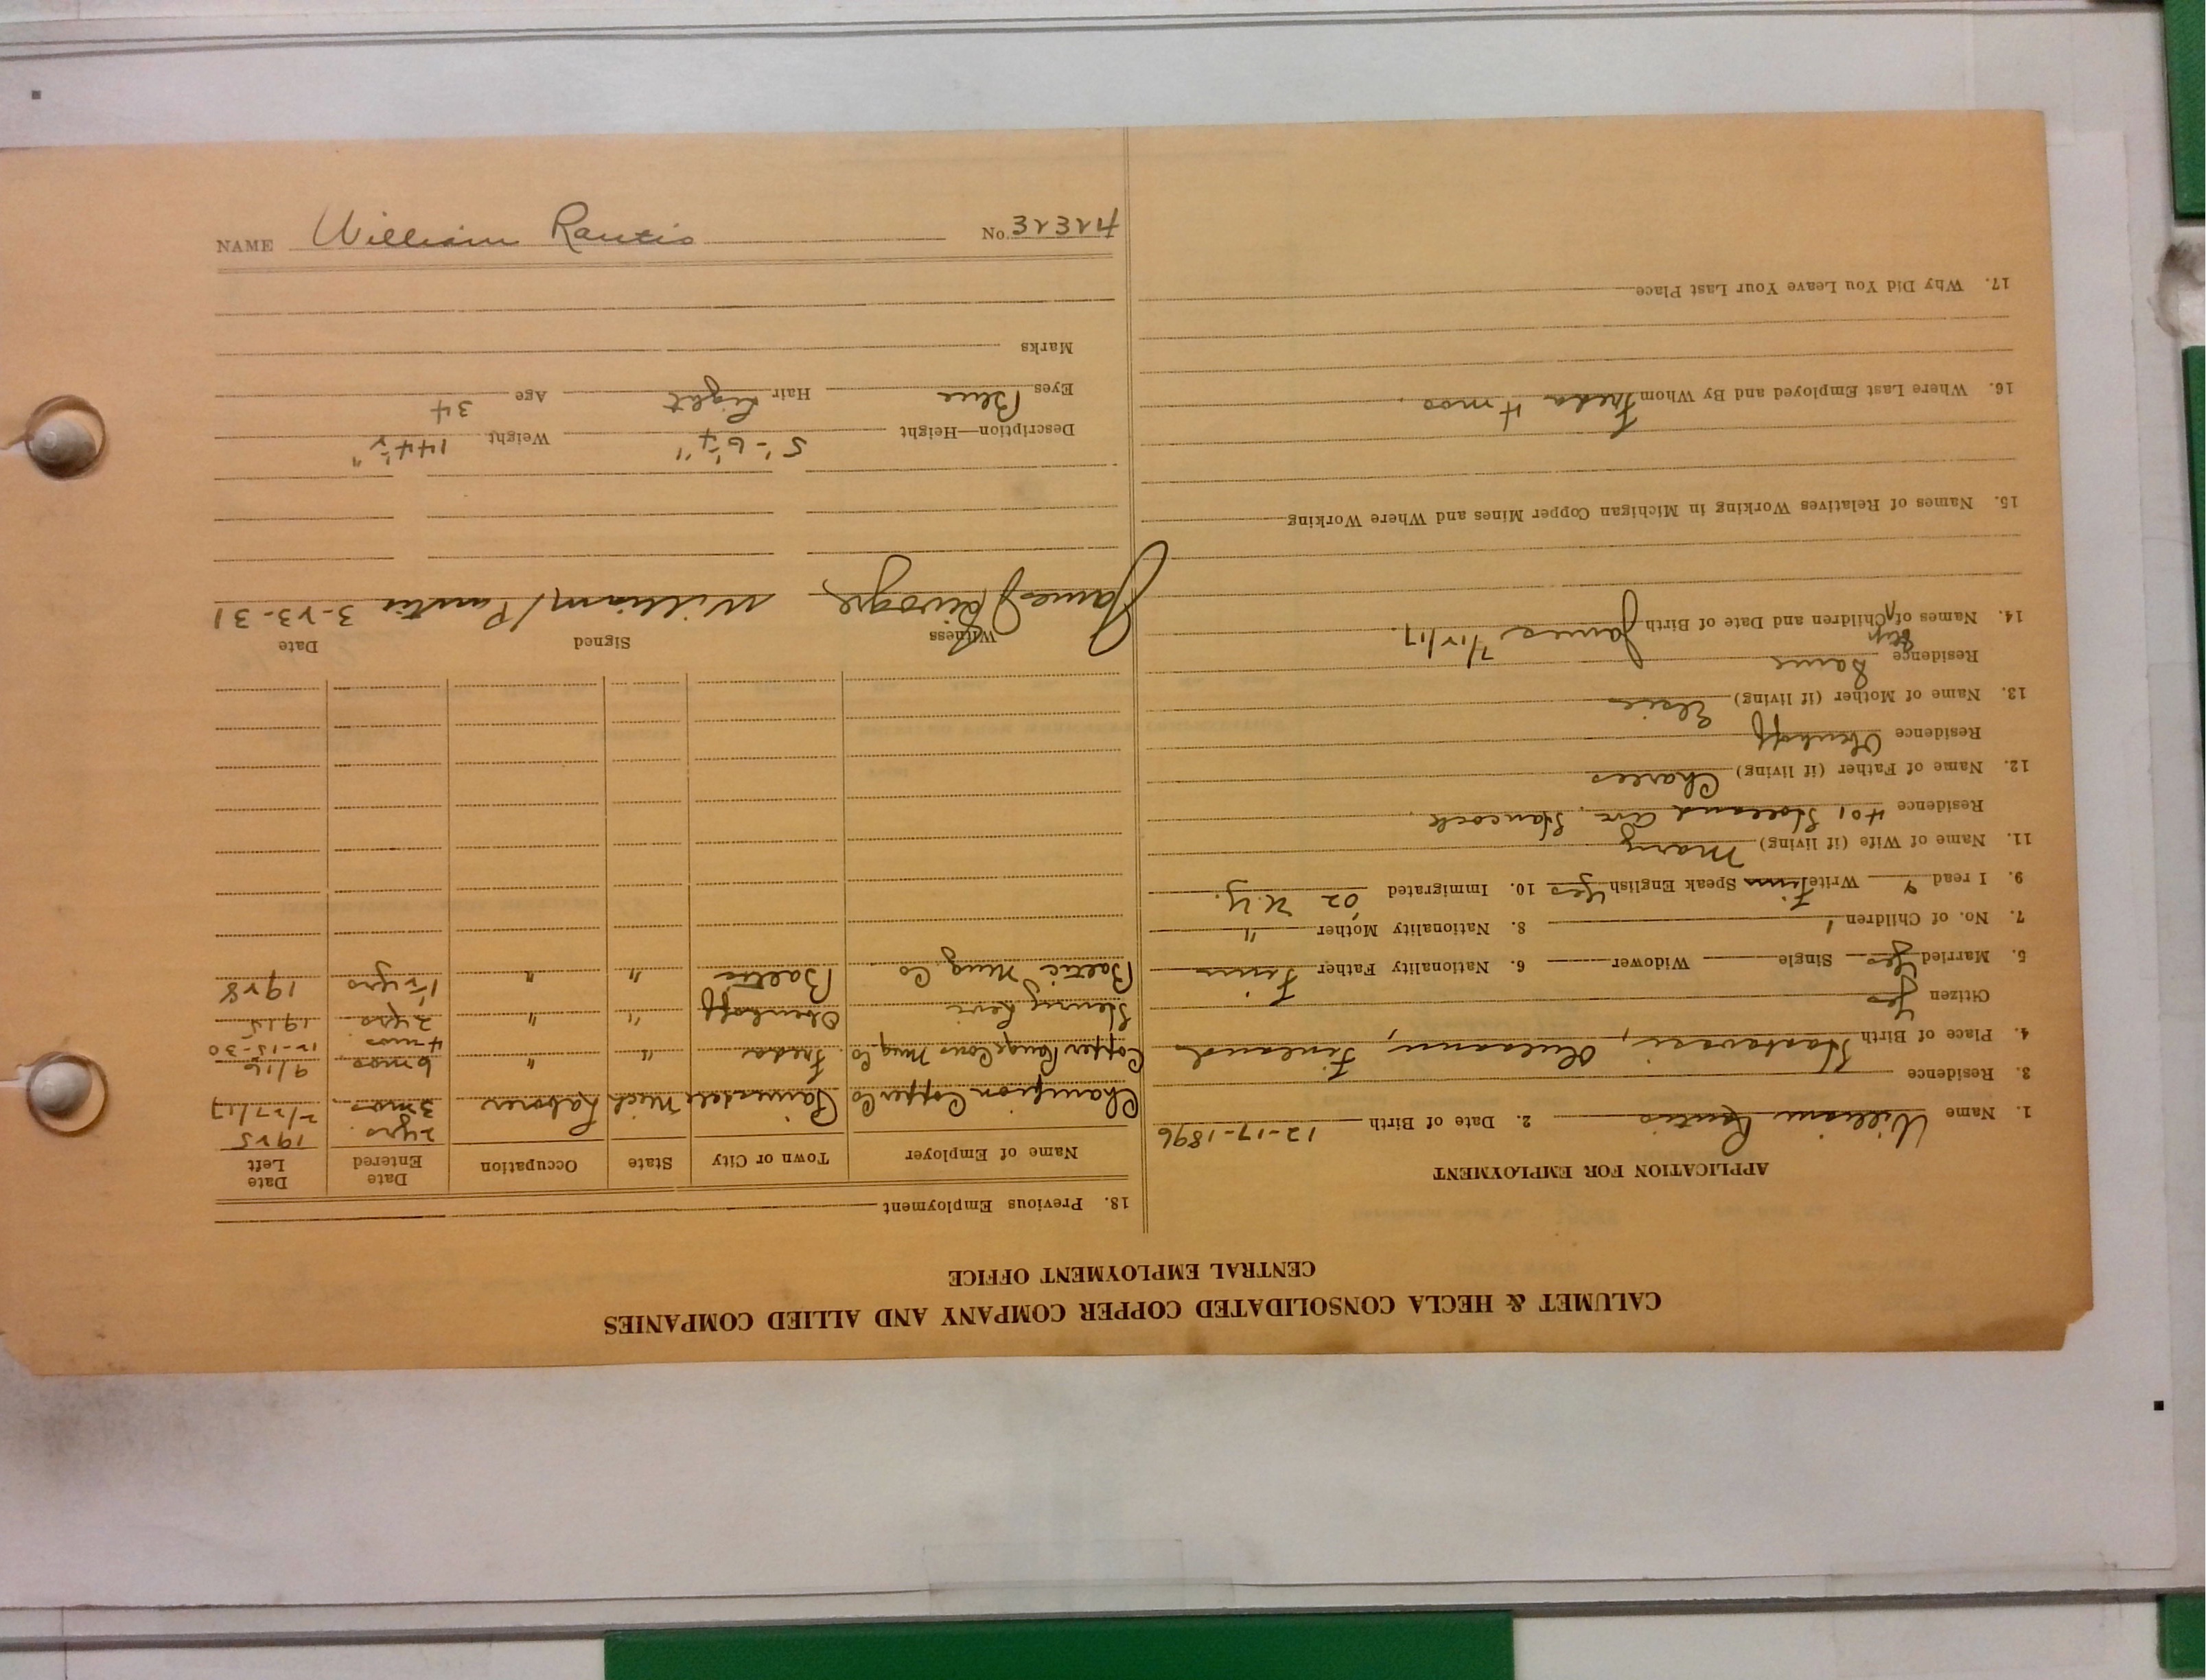 CALUMET & HECLA CONSOLIDATED COPPER COMPANY AND ALLIED COMPANIES
CENTRAL EMPLOYMENT OFFICE
APPLICATION FOR EMPLOYMENT
1. Name William Rautio 2. Date of Birth 12-17-1896
3. Residence
4. Place of Birth Finland
Citizen Yes
5. Married Yes Single Widower 6. Nationality Father Finn
7. No. of Children 1 8. Nationality Mother "
9. I read & Write Finn Speak English Yes 10. Immigrated '02 N.Y.
11. Name of Wife (if living) Mary
Residence 401 Holland Ave, Hancock
12. Name of Father (if living) Charles
Residence Obenhoff
13. Name of Mother (if living) Elsie
Residence Same
14. Names of Step Children and Date of Birth James 7/12/17.
15. Names of Relatives Working in Michigan Copper Mines and Where Working
16. Where Last Employed and By Whom Freda 4 mos.
17. Why Did You Leave Your Last Place
18. Previous Employment
Name of Employer Town or City State Occupation Date Entered Date Left
2 yrs. 1925
Champion Copper Co Painesdale Mich Laborer 3 mos. 2/27/17
Copper Range Cons Mng. Co Freda " " 6 mos. 9/16
4 mos 12-15-30
Henry Levi Obenhoff " " 2 yrs. 1915
Baltic Mng. Co Baltic " " 1½ yrs 1928
Witness Signed Date
James William Rautio 3-23-31
Description—Height 5'-6¼" Weight 144½"
Eyes Blue Hair Light Age 34
Marks
NAME William Rautio No.